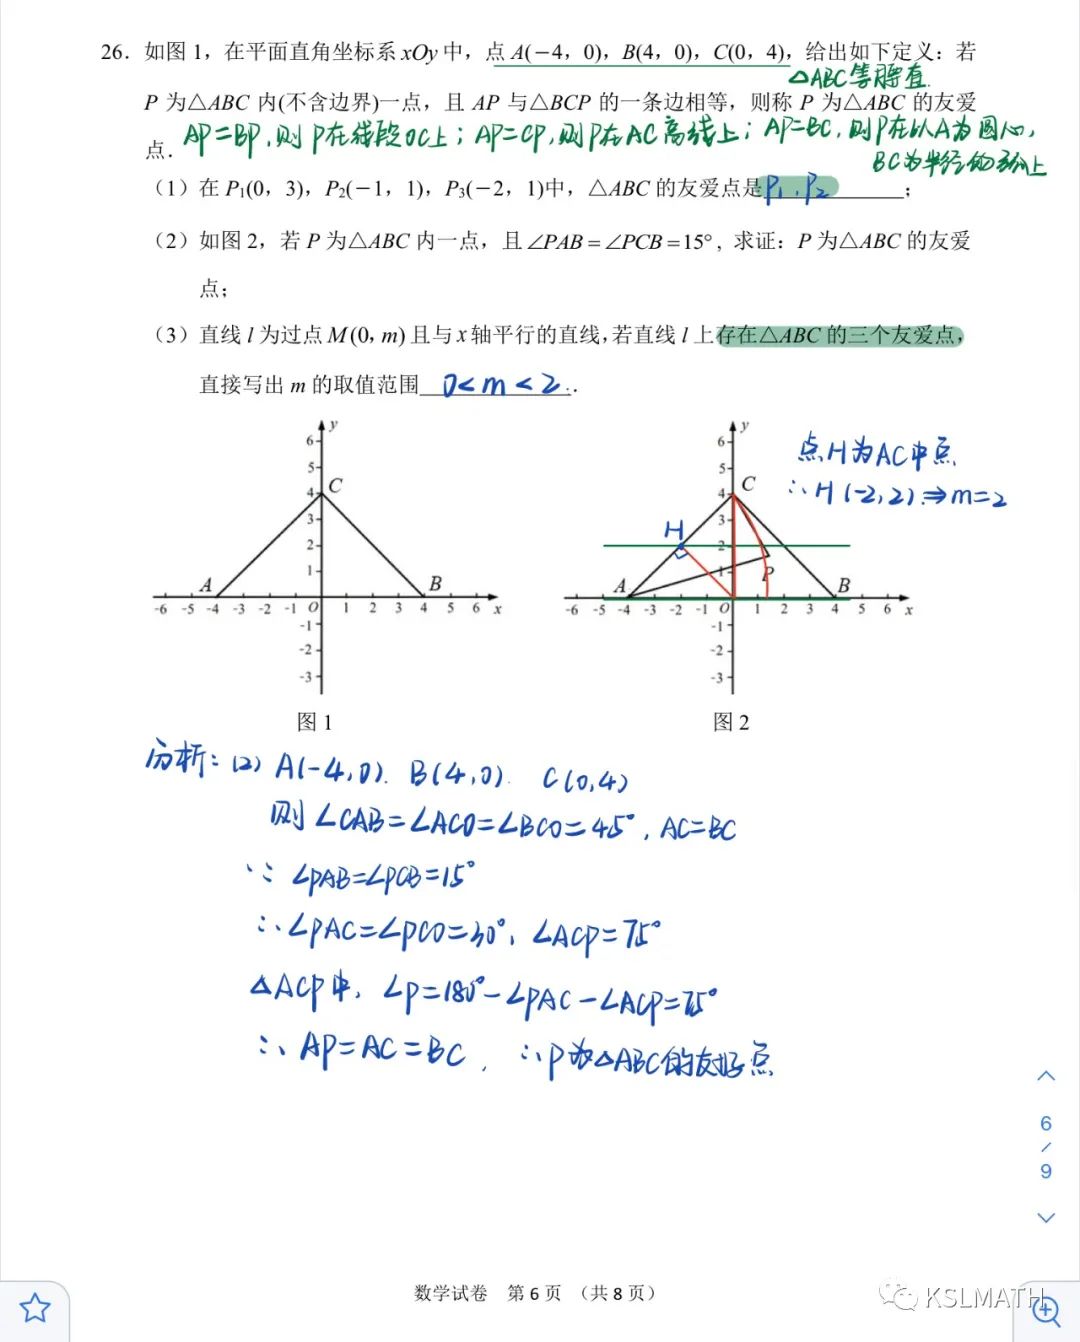 26．如图 1，在平面直角坐标系 xOy 中，点 A(－4，0)，B(4，0)，C(0，4)，给出如下定义：若
△ABC等腰直.
P 为△ABC 内(不含边界)一点，且 AP 与△BCP 的一条边相等，则称 P 为△ABC 的友爱
点．
AP=BP,则P在线段OC上；AP=CP,则P在AC高线上；AP=BC,则P在以A为圆心，
BC为半径的弧上
（1）在 P₁(0，3)，P₂(－1，1)，P₃(－2，1)中，△ABC 的友爱点是 P₁、P₂ ；
（2）如图 2，若 P 为△ABC 内一点，且∠PAB=∠PCB=15°，求证：P 为△ABC 的友爱
点；
（3）直线 l 为过点 M (0, m) 且与 x 轴平行的直线，若直线 l 上存在△ABC 的三个友爱点，
直接写出 m 的取值范围 0<m<2 .
y
6
5
4 C
3
2
1
A B
-6 -5 -4 -3 -2 -1 O 1 2 3 4 5 6 x
-1
-2
-3
图 1
y
6
5
4 C
3
H 2
1 P
A B
-6 -5 -4 -3 -2 -1 O 1 2 3 4 5 6 x
-1
-2
-3
图 2
点H为AC中点
∴H(-2,2)⇒m=2
分析：(2) A(-4,0). B(4,0). C(0,4)
则∠CAB=∠ACO=∠BCO=45°, AC=BC
∵ ∠PAB=∠PCB=15°
∴∠PAC=∠PCO=30°, ∠ACP=75°
△ACP中，∠P=180°-∠PAC-∠ACP=75°
∴ AP=AC=BC, ∴P为△ABC的友好点
6
/
9
数学试卷 第 6 页 （共 8 页）
KSLMATH